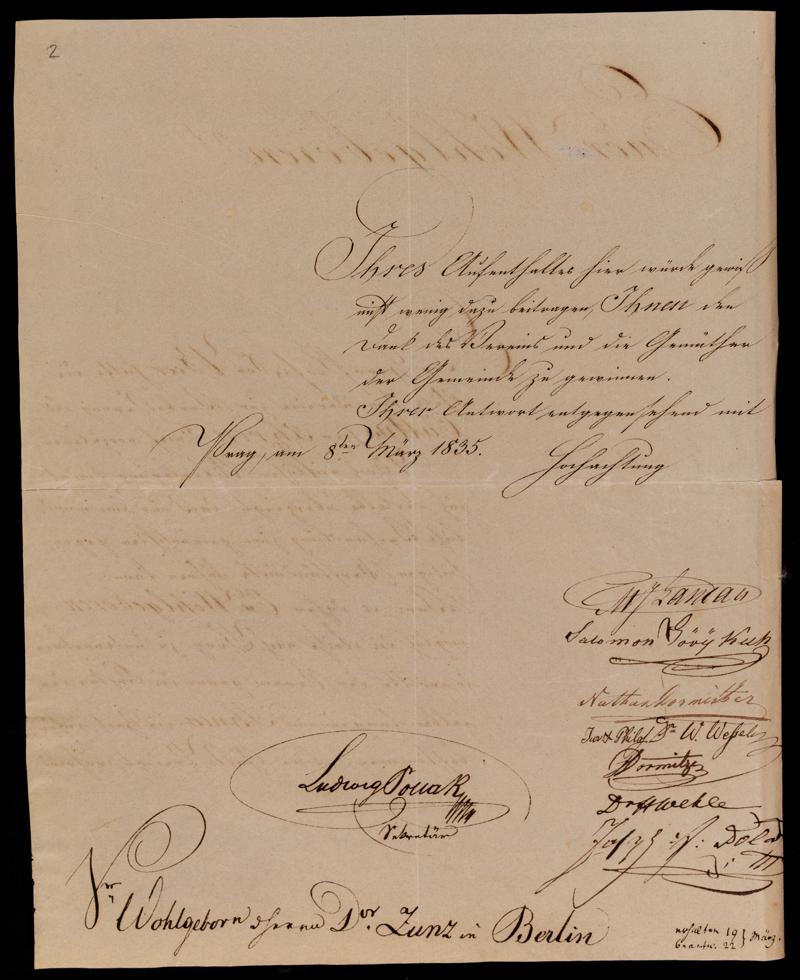 2
Ihres Aufenthaltes hier würde gewiß
nicht wenig dazu beitragen, Ihnen den
Dank des Vereins und die Gemüther
der Gemeinde zu gewinnen.
Ihrer Antwort entgegen sehend mit
Prag, am 8ten März 1835.
Hochachtung
Landau
Salomon
Nathan Dormitzer
Jur & Phil. Dr. W. Wessely
Dormitzer
Dr Wehle
Joseph
Ludwig Pollak
Sekretär
Sr Wohlgeborn Herrn Dor. Zunz in Berlin
erhalten 19
beantw. 22 } März.